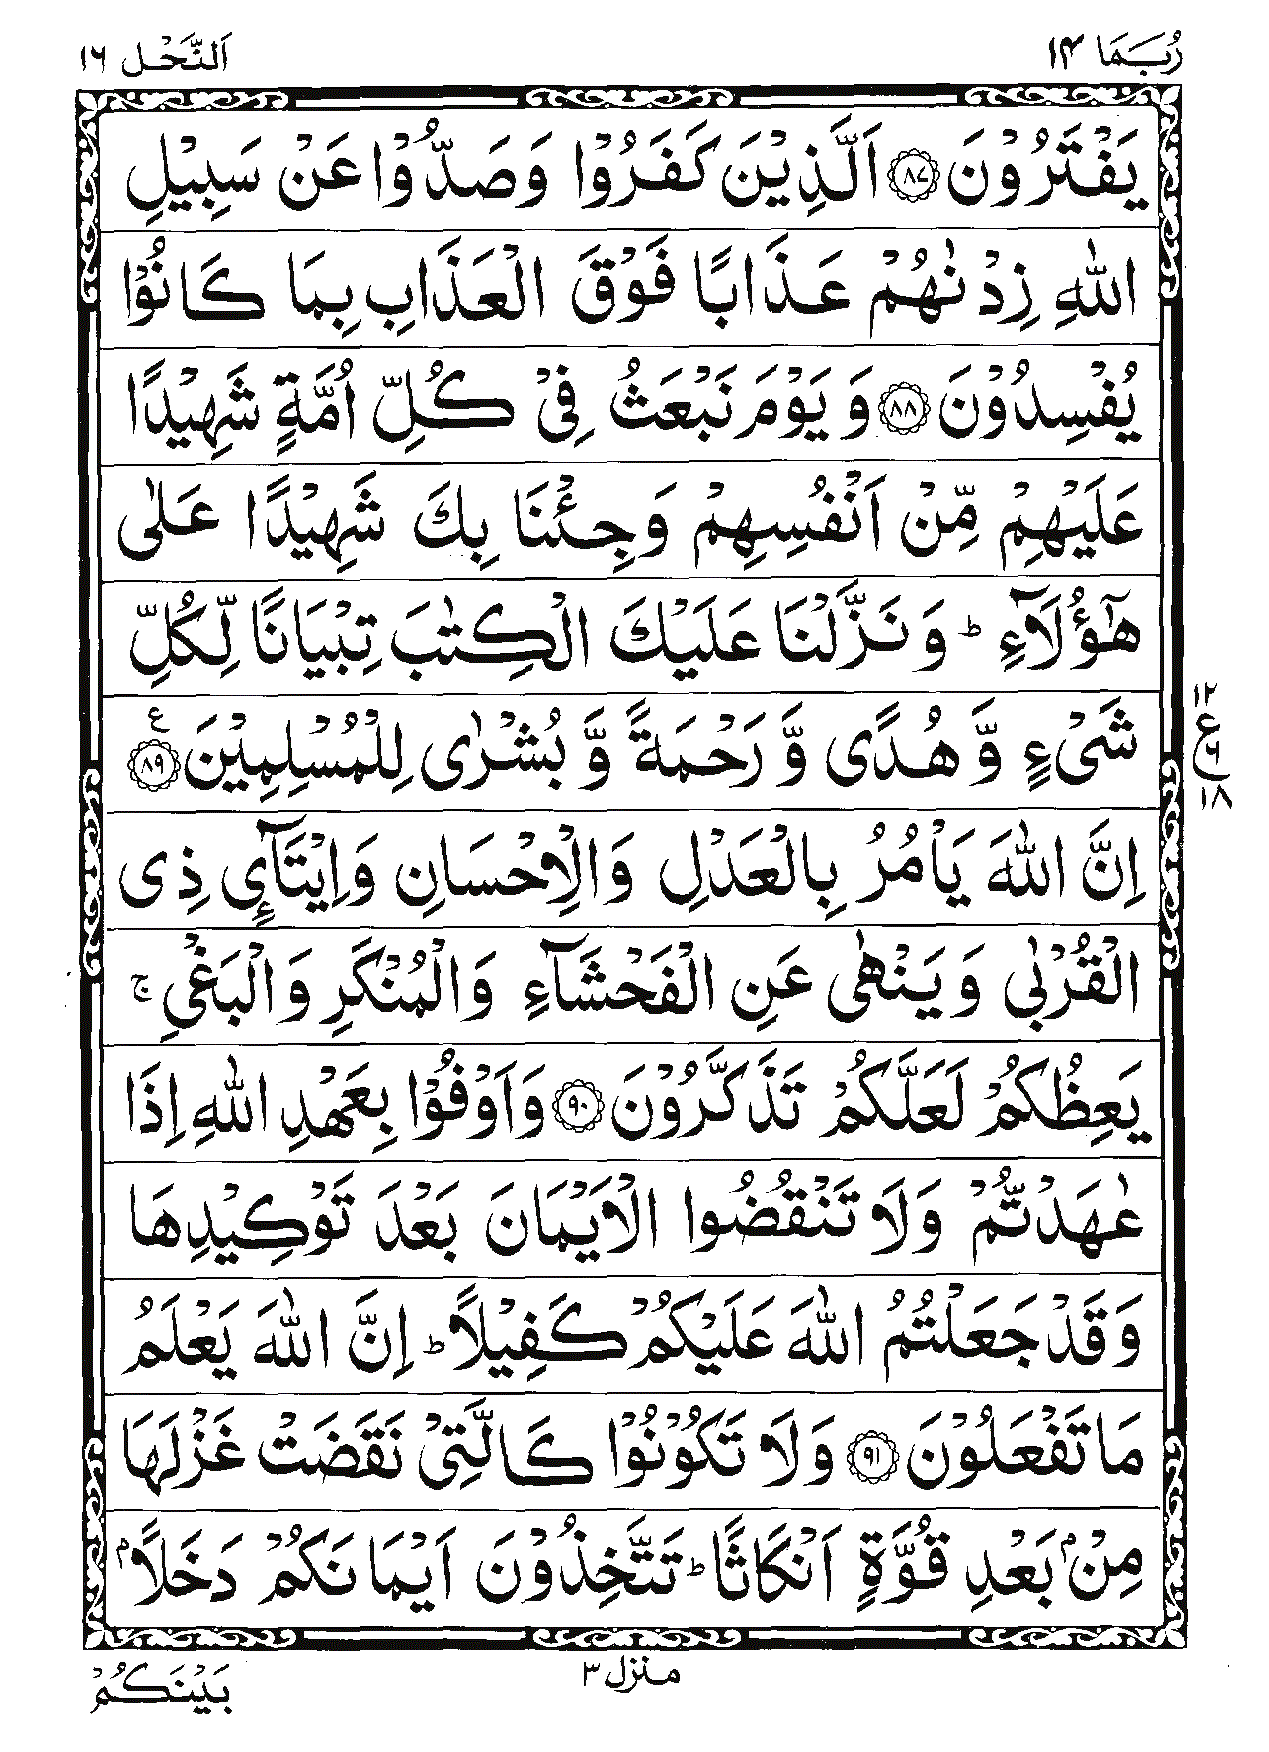 رُبَمَا ١٤
اَلنَّحْل ١٦
يَفْتَرُوْنَ ﴿٨٧﴾ اَلَّذِيْنَ كَفَرُوْا وَصَدُّوْا عَنْ سَبِيْلِ
اللّٰهِ زِدْنٰهُمْ عَذَابًا فَوْقَ الْعَذَابِ بِمَا كَانُوْا
يُفْسِدُوْنَ ﴿٨٨﴾ وَ يَوْمَ نَبْعَثُ فِيْ كُلِّ اُمَّةٍ شَهِيْدًا
عَلَيْهِمْ مِّنْ اَنْفُسِهِمْ وَجِئْنَا بِكَ شَهِيْدًا عَلٰى
هٰٓؤُلَآءِ ؕ وَ نَزَّلْنَا عَلَيْكَ الْكِتٰبَ تِبْيَانًا لِّكُلِّ
شَيْءٍ وَّ هُدًى وَّ رَحْمَةً وَّ بُشْرٰى لِلْمُسْلِمِيْنَ ﴿٨٩﴾ ع
١٢
ع
٦
١٨
اِنَّ اللّٰهَ يَاْمُرُ بِالْعَدْلِ وَالْاِحْسَانِ وَاِيْتَآئِ ذِى
الْقُرْبٰى وَ يَنْهٰى عَنِ الْفَحْشَآءِ وَالْمُنْكَرِ وَالْبَغْيِ ۚ
يَعِظُكُمْ لَعَلَّكُمْ تَذَكَّرُوْنَ ﴿٩٠﴾ وَاَوْفُوْا بِعَهْدِ اللّٰهِ اِذَا
عٰهَدْتُّمْ وَلَا تَنْقُضُوا الْاَيْمَانَ بَعْدَ تَوْكِيْدِهَا
وَقَدْ جَعَلْتُمُ اللّٰهَ عَلَيْكُمْ كَفِيْلًا ؕ اِنَّ اللّٰهَ يَعْلَمُ
مَا تَفْعَلُوْنَ ﴿٩١﴾ وَلَا تَكُوْنُوْا كَالَّتِيْ نَقَضَتْ غَزْلَهَا
مِنْۢ بَعْدِ قُوَّةٍ اَنْكَاثًا ؕ تَتَّخِذُوْنَ اَيْمَانَكُمْ دَخَلًاۢ
منزل ٣
بَيْنَكُمْ